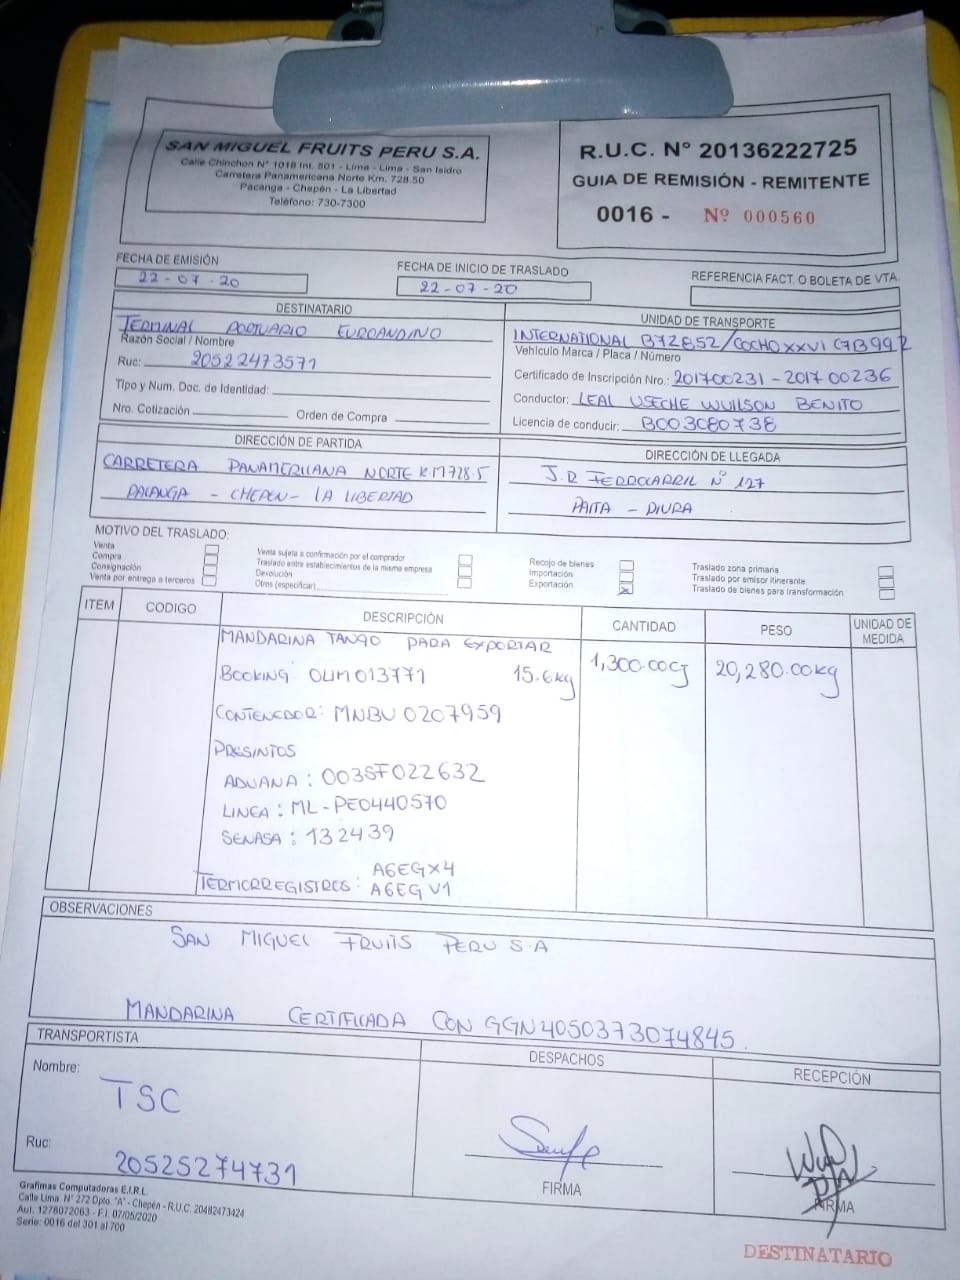 SAN MIGUEL FRUITS PERU S.A.
Calle Chinchon N° 1018 Int. 801 - Lima - Lima - San Isidro
Carretera Panamericana Norte Km. 728.50
Pacanga - Chepén - La Libertad
Teléfono: 730-7300
R.U.C. N° 20136222725
GUIA DE REMISIÓN - REMITENTE
0016 - Nº 000560
FECHA DE EMISIÓN
22-07-20
FECHA DE INICIO DE TRASLADO
22-07-20
REFERENCIA FACT. O BOLETA DE VTA.
DESTINATARIO
TERMINAL PORTUARIO EUROANDINO
Razón Social / Nombre
Ruc: 20522473571
Tipo y Num. Doc. de Identidad:
Nro. Cotización Orden de Compra
UNIDAD DE TRANSPORTE
INTERNATIONAL B7Z852/COCHOXXVI C7B992
Vehículo Marca / Placa / Número
Certificado de Inscripción Nro.: 201700231-201700236
Conductor: LEAL USECHE WUILSON BENITO
Licencia de conducir: B003080738
DIRECCIÓN DE PARTIDA
CARRETERA PANAMERICANA NORTE KM728.5
PACANGA - CHEPEN - LA LIBERTAD
DIRECCIÓN DE LLEGADA
J.R FERROCARRIL N° 127
PAITA - PIURA
MOTIVO DEL TRASLADO:
Venta
Compra
Consignación
Venta por entrega a terceros
Venta sujeta a confirmación por el comprador
Traslado entre establecimientos de la misma empresa
Devolución
Otros (especificar)
Recojo de bienes
Importación
Exportación X
Traslado zona primaria
Traslado por emisor itinerante
Traslado de bienes para transformación
ITEM CODIGO DESCRIPCIÓN CANTIDAD PESO UNIDAD DE MEDIDA
MANDARINA TANGO PARA EXPORTAR
BOOKING: OLIM013771 15.6kg 1,300.00CJ 20,280.00kg
CONTENEDOR: MNBU 0207959
PRESINTOS
ADUANA: 003SF022632
LINEA: ML-PE0440570
SENASA: 132439
A6EGX4
TERMORREGISTROS: A6EGV1
OBSERVACIONES
SAN MIGUEL FRUITS PERU S.A
MANDARINA CERTIFICADA CON GGN 4050373074845.
TRANSPORTISTA
Nombre:
TSC
Ruc:
20525274731
DESPACHOS
FIRMA
RECEPCIÓN
FIRMA
Grafimas Computadoras E.I.R.L.
Calle Lima N° 272 Dpto. "A" - Chepén - R.U.C. 20482473424
Aut. 1278072063 - F.I. 07/05/2020
Serie: 0016 del 301 al 700
DESTINATARIO